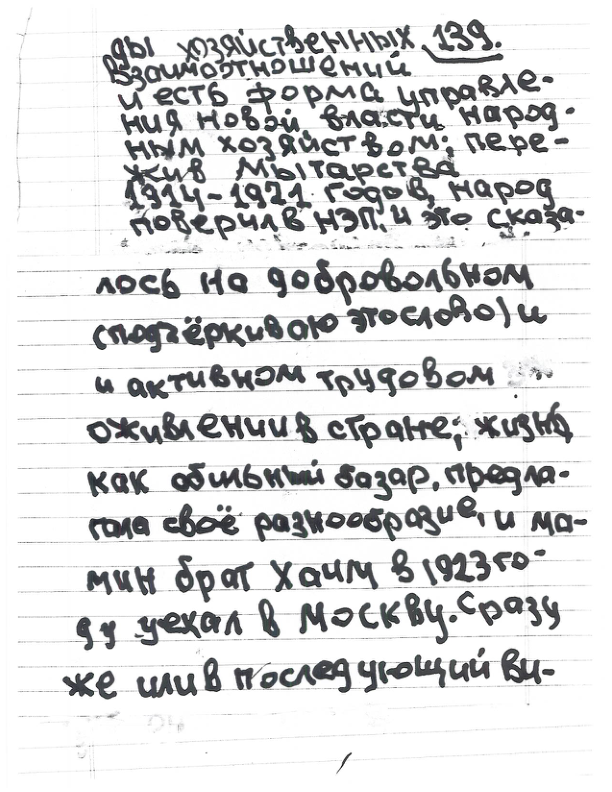 ды хозяйственных 139.
взаимоотношений
и есть форма управле-
ния новой власти народ-
ным хозяйством; пере-
жив мытарства
1914-1921 годов, народ
поверил в НЭП, и это сказа-
лось на добровольном
(подчёркиваю это слово) и
и активном трудовом
оживлении в стране; жизнь,
как обильный базар, предла-
гала своё разнообразие, и ма-
мин брат Хаим в 1923 го-
ду уехал в Москву. Сразу
же или в последующий ви-